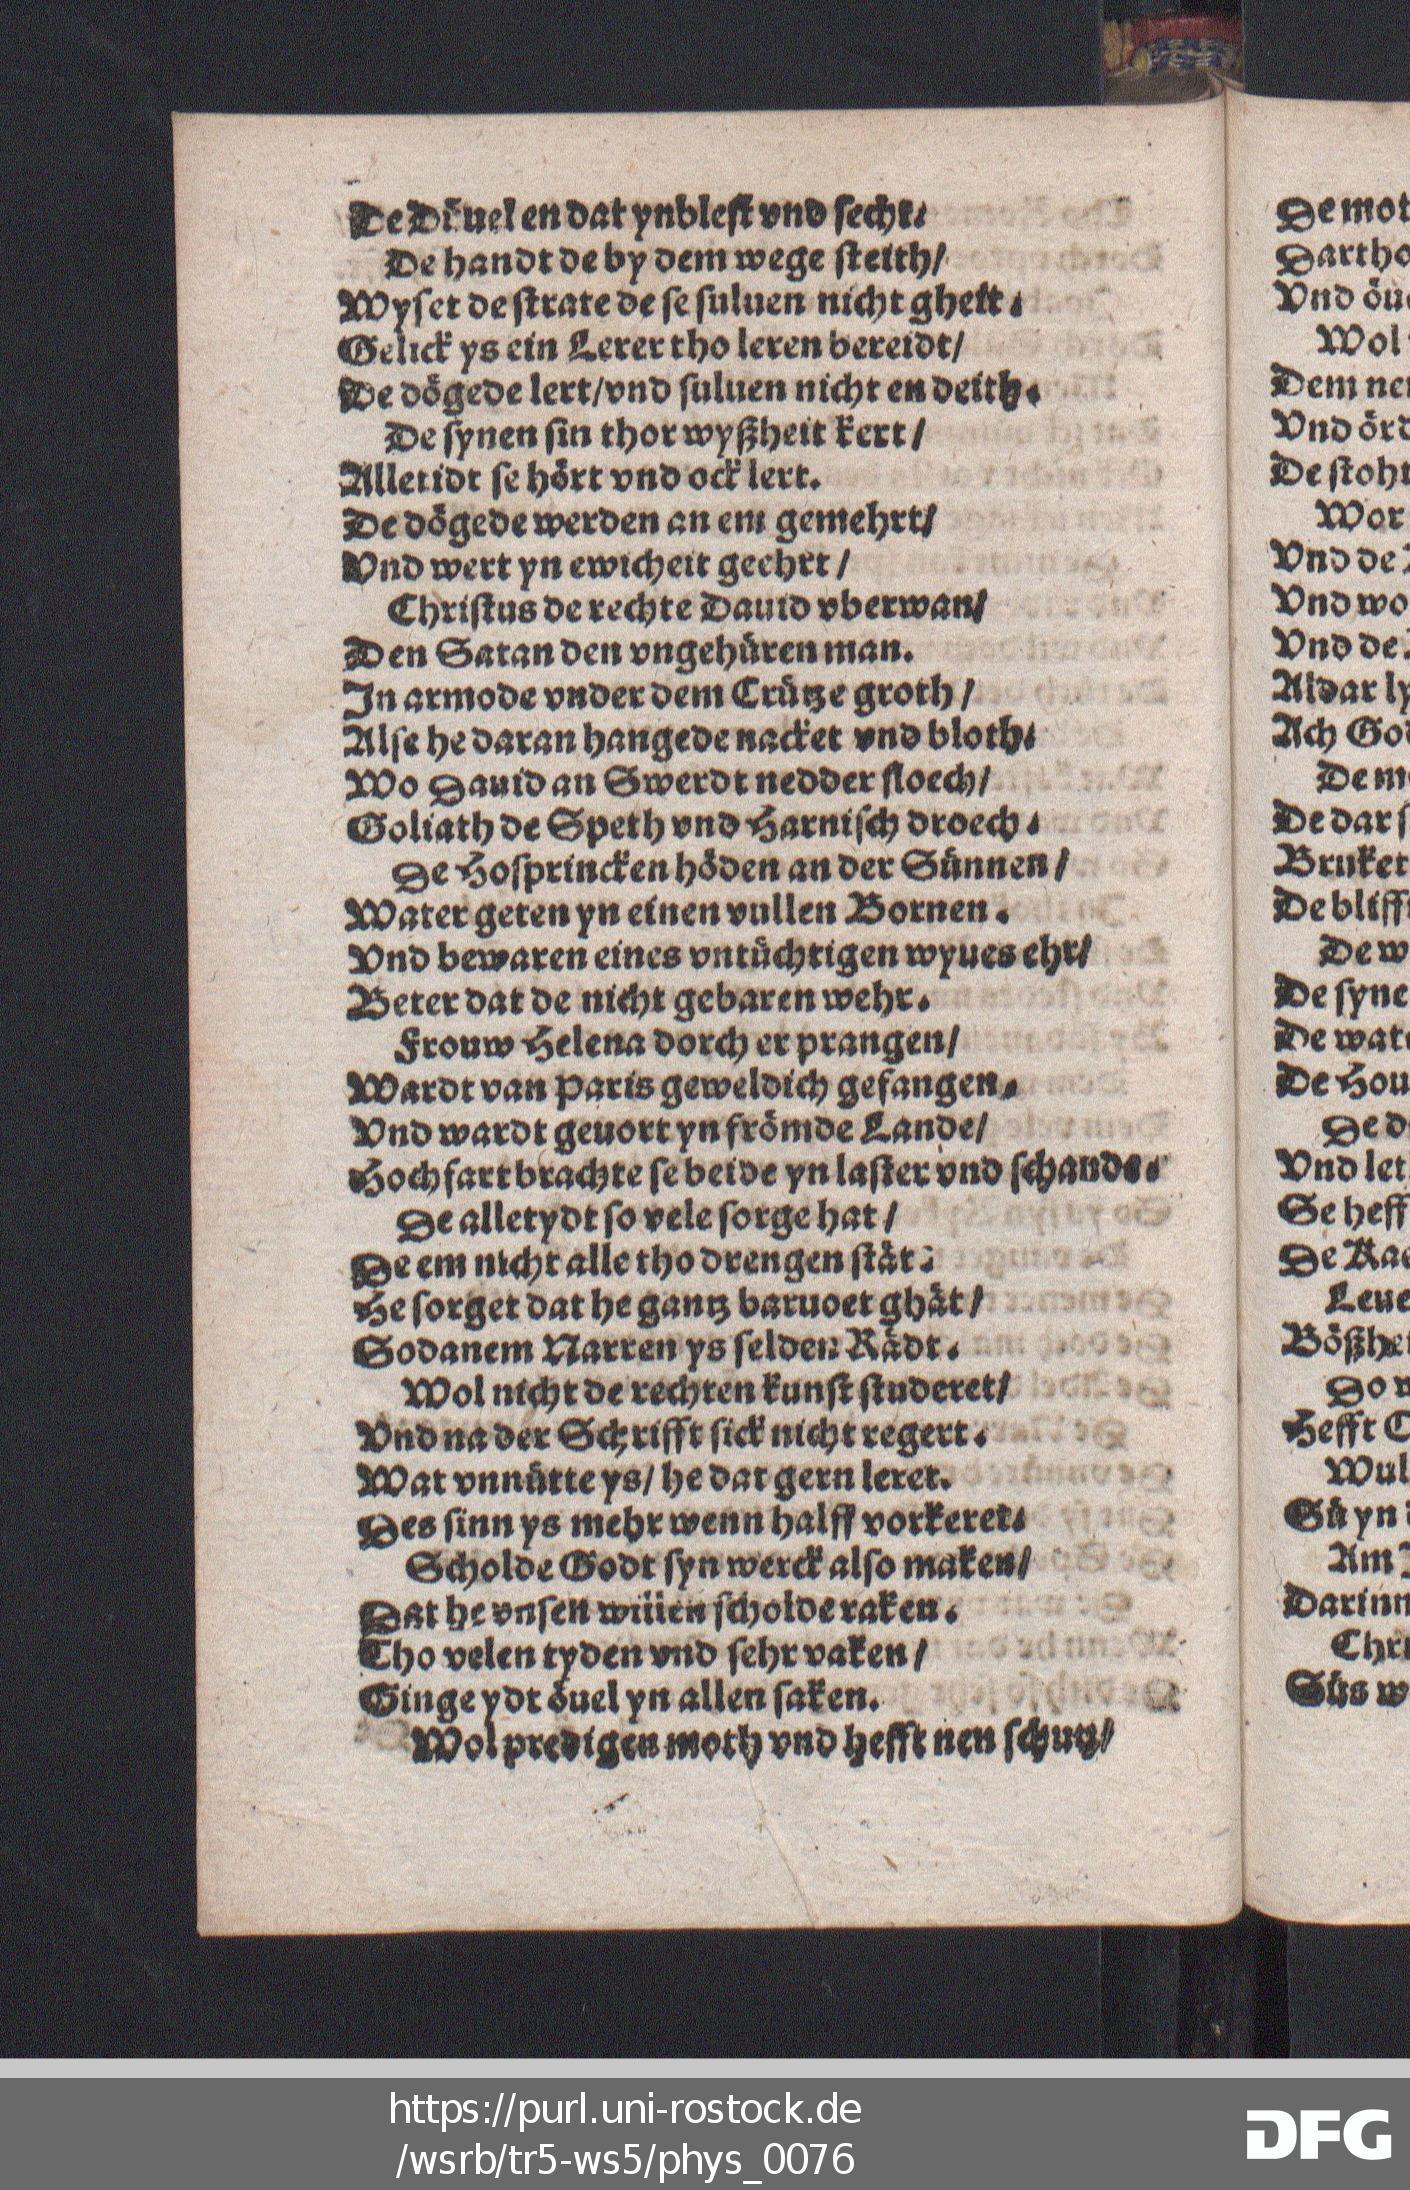 De Düuel en dat ynblest vnd secht.
De handt de by dem wege steith/
Wyset de strate de se suluen nicht gheit.
Gelick ys ein Lerer tho leren bereidt/
De dögede lert/vnd suluen nicht en deith.
De synen sin thor wyßheit kert/
Alletidt se hört vnd ock lert.
De dögede werden an em gemehrt/
Vnd wert yn ewicheit geehrt/
Christus de rechte Dauid vberwan/
Den Satan den vngehüren man.
In armode vnder dem Crütze groth/
Alse he daran hangede nacket vnd bloth.
Wo Dauid an Swerdt nedder sloech/
Goliath de Speth vnd Harnisch droech.
De Hosprincken höden an der Sünnen/
Water geten yn einen vullen Bornen.
Vnd bewaren eines vntüchtigen wyues ehr/
Beter dat de nicht gebaren wehr.
Frouw Helena dorch er prangen/
Wardt van Paris geweldich gefangen.
Vnd wardt geuort yn frömde Lande/
Hochfart brachte se beide yn laster vnd schande.
De alletydt so vele sorge hat/
De em nicht alle tho drengen stät.
He sorget dat he gantz baruoet ghät/
Sodanem Narren ys selden Rädt.
Wol nicht de rechten kunst studeret/
Vnd na der Schrifft sick nicht regert.
Wat vnnütte ys/ he dat gern leret.
Des sinn ys mehr wenn halff vorkeret.
Scholde Godt syn werck also maken/
Dat he vnsen willen scholde raken.
Tho velen tyden vnd sehr vaken/
Ginge ydt öuel yn allen saken.
Wol predigen moth vnd hefft nen schutz/
De mot
Dartho
Vnd öu
Wol
Dem ne
Vnd örd
De stoh
Wor
Vnd de
Vnd wo
Vnd de
Aldar ly
Ach Go
De m
De dar s
Bruker
De bliff
De w
De syne
De wat
De Hou
De d
Vnd let
Se heff
De Rae
Leue
Bößhe
Do w
Hefft
Wul
Gü yn
Am
Darinn
Chr
Süs w
https://purl.uni-rostock.de
/wsrb/tr5-ws5/phys_0076
DFG